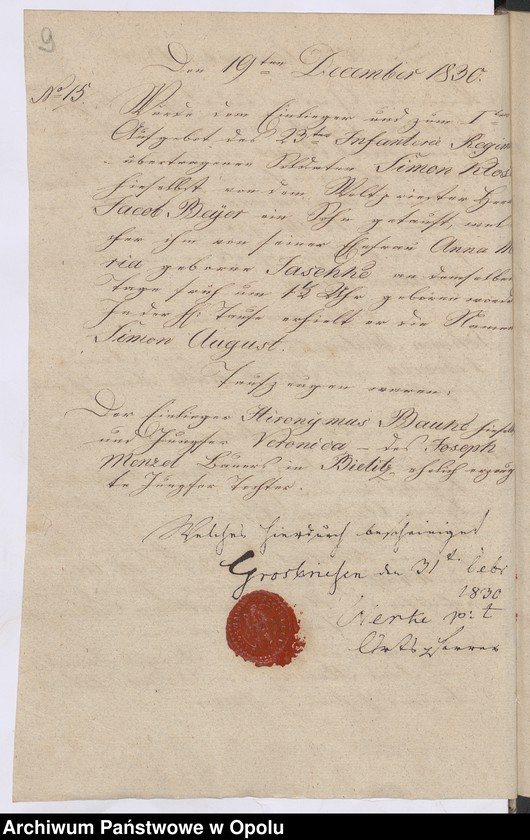 9
Den 19ten December 1830.
No 15.
Wurde dem Einlieger und zum Iten
Aufgebot des 23ten Infanterie Regim
übertragenen Soldaten Simon Klos
hieselbst von dem Weltpriester Herr
Jacob Beÿer ein Sohn getauft, wel
cher ihm von seiner Ehefrau Anna M
ria geborne Jaschke an demselben
Tage früh um 1½ Uhr geboren worde
In der h: Taufe erhielt er die Namen
Simon August.
Taufzeugen waren:
Der Einlieger Hironÿmus Bauke hieselb
und Jungfer Veronica - des Joseph
Menzel Bauers in Bielitz ehelich erzeug
te Jungfer Tochter.
Welches hierdurch bescheiniget
den 31t Xbr
1830
p: t
Ortspfarrer
Archiwum Państwowe w Opolu